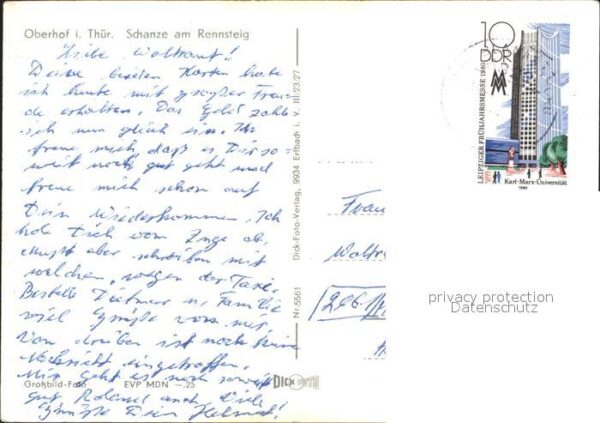 Oberhof i. Thür. Schanze am Rennsteig
Liebe Waltraut!
Deine beiden Karten habe
ich heute mit großer Freu-
de erhalten. Das Geld zahle
ich nun gleich ein. Ich
freue mich daß es Dir so-
weit noch gut geht und
freue mich schon auf
Dein Wiederkommen. Ich
hole Dich vom Zuge ab,
mußt aber schreiben mit
welchen, wegen der Taxe.
Bestelle Dietmar u. Familie
viel Grüße von mir,
von drüben ist noch keine
Nachricht eingetroffen.
Mir geht es noch soweit
gut Roland auch. Viele
Grüße Dein Helmut!
Großbild-Foto EVP MDN -.25
Nr 5561 Dick-Foto-Verlag, 9934 Erlbach i. V. III 23 27
DICK FOTO
10
DDR
MM
LEIPZIGER FRÜHJAHRSMESSE 1980
Karl-Marx-Universität
1980
Frau
privacy protection
Datenschutz